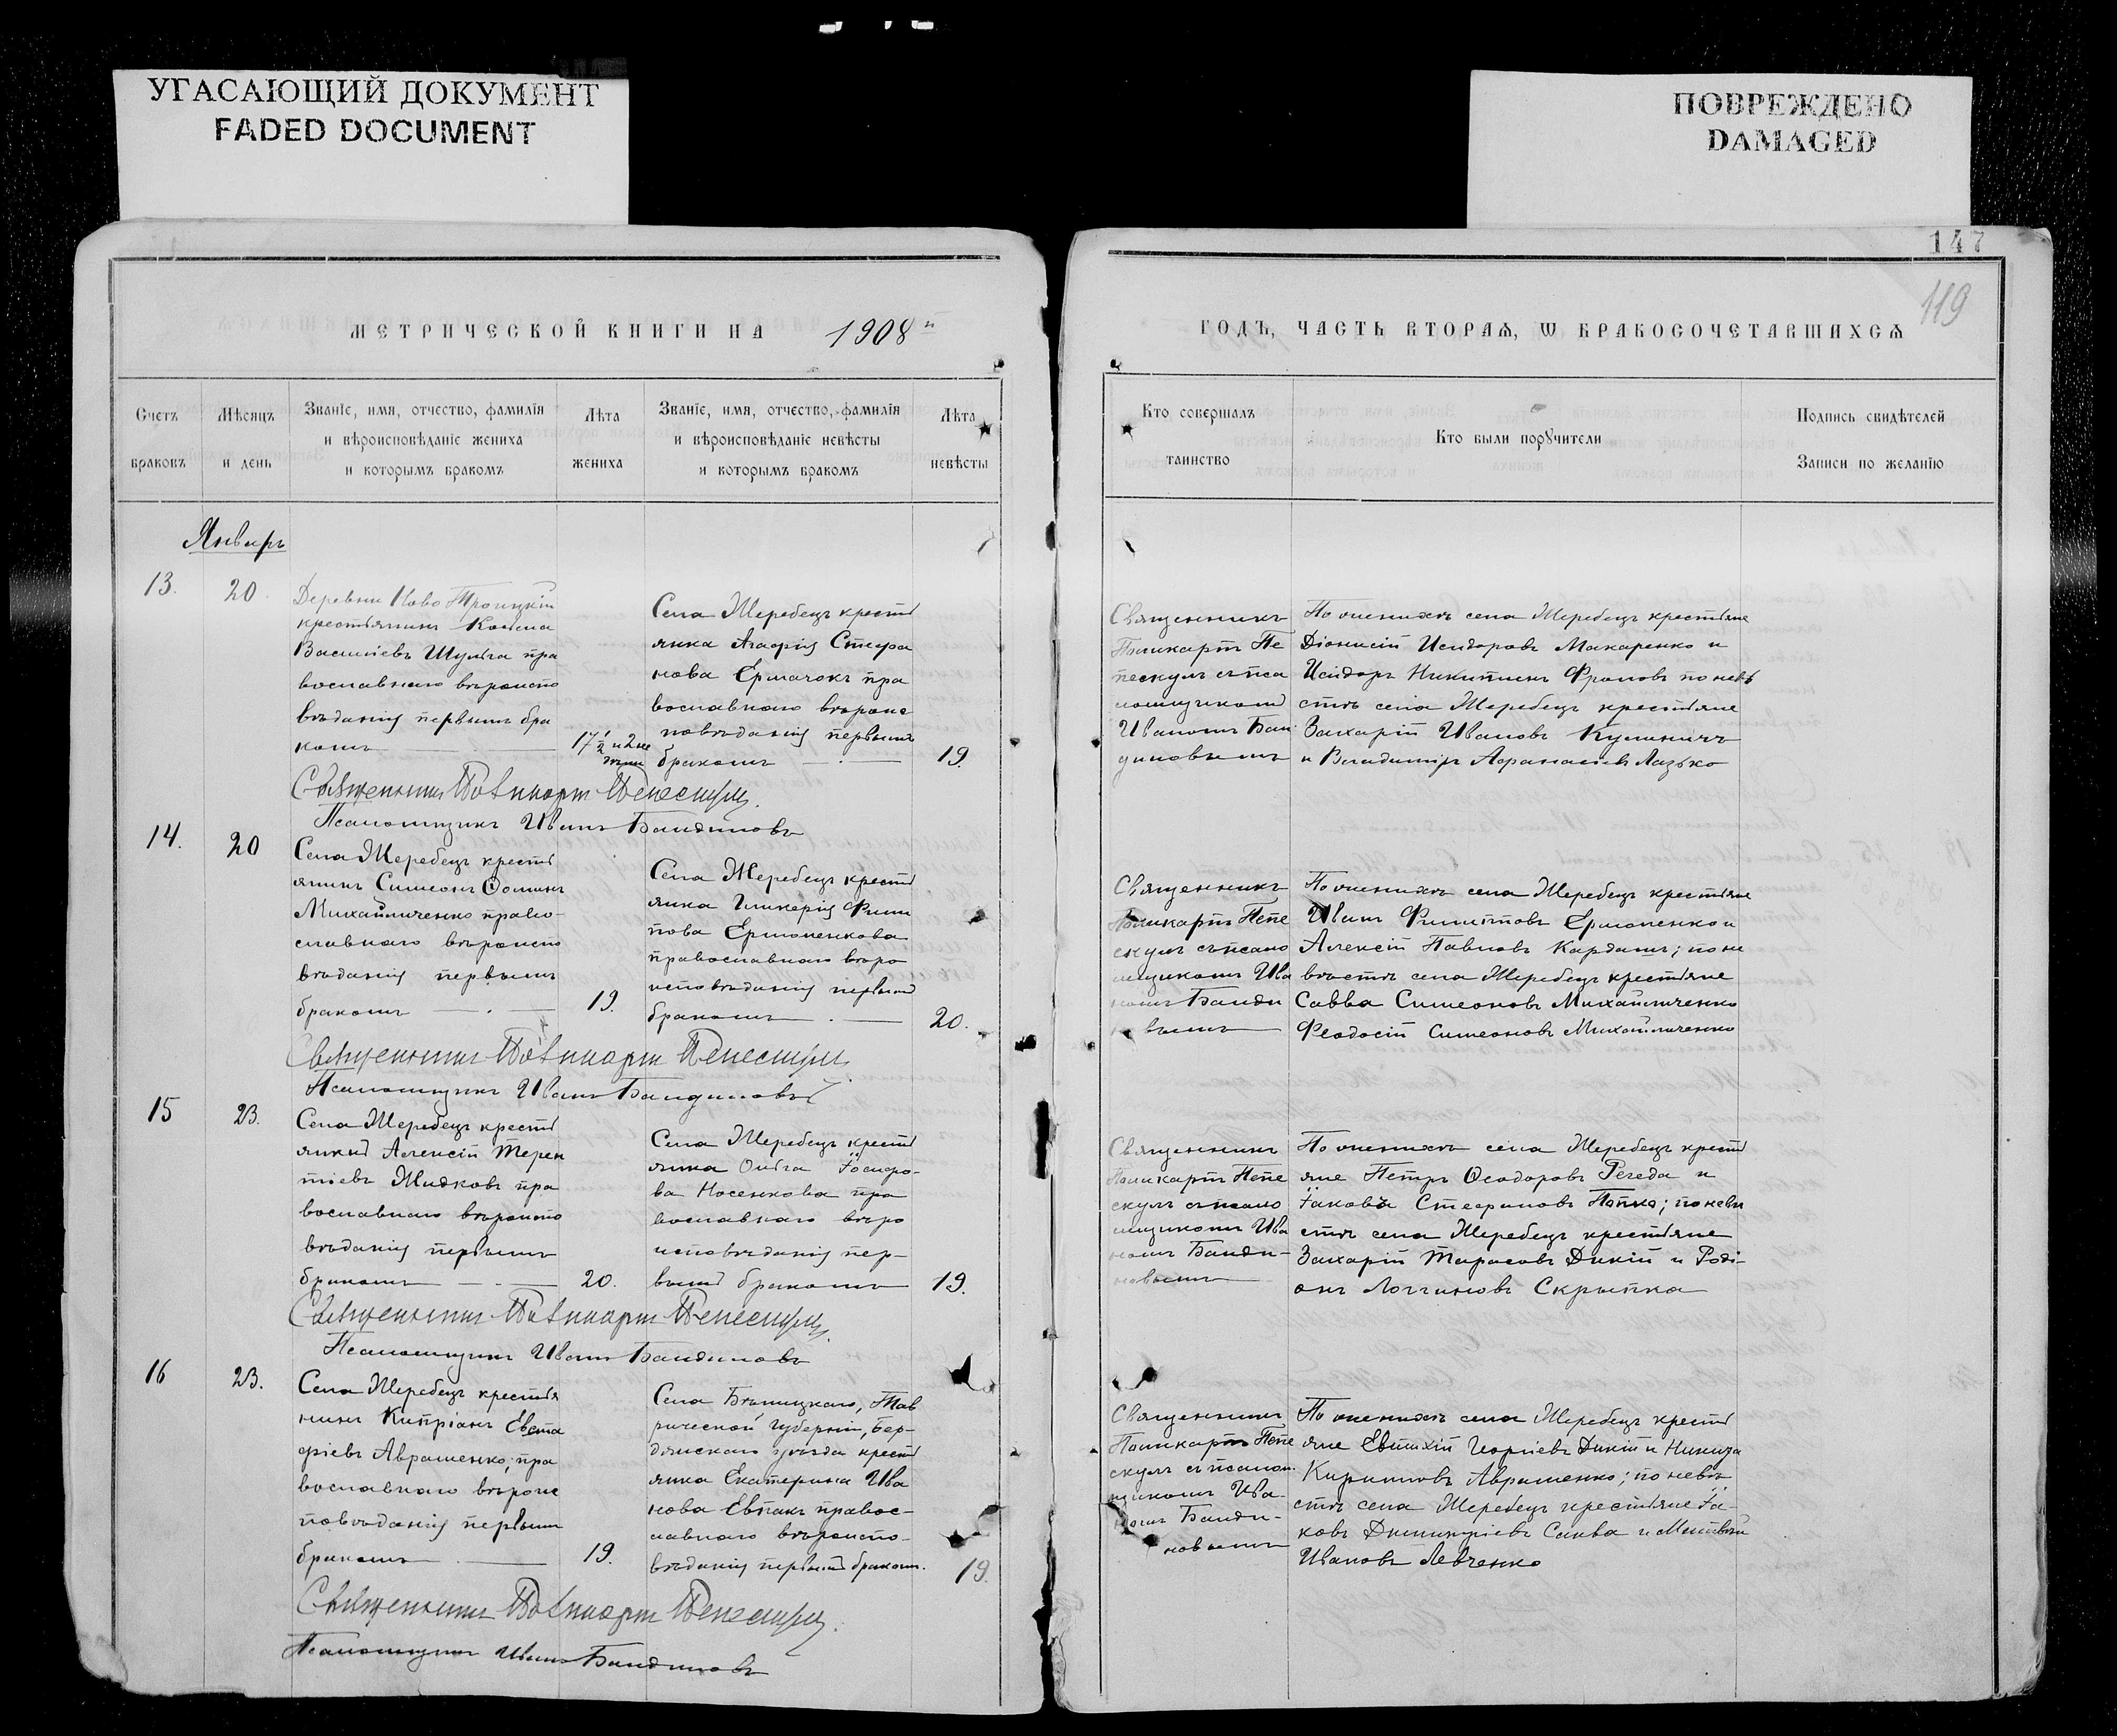 УГАСАЮЩИЙ ДОКУМЕНТ
FADED DOCUMENT
ПОВРЕЖДЕНО
DAMAGED
147
119
МЕТРИЧЕСКОЙ КНИГИ НА 1908й
ГОДЪ, ЧАСТЬ ВТОРАѦ, Ѡ БРАКОСОЧЕТАВШИХСѦ
Счетъ
браковъ
Мѣсяцъ
и день
Званіе, имя, отчество, фамилія
и вѣроисповѣданіе жениха
и которымъ бракомъ
Лѣта
жениха
Званіе, имя, отчество, фамилія
и вѣроисповѣданіе невѣсты
и которымъ бракомъ
Лѣта
невѣсты
Кто совершалъ
таинство
Кто были порꙋчители
Подпись свидѣтелей
Записи по желанію
Январь
13.
20.
Деревни Ново Троицкій
крестьянинъ Косьма
Василіевъ Шульга пра
вославнаго вѣроиспо
вѣданія первымъ бра
комъ
17 1/2 и 2 не
дѣли
Села Жеребецъ кресть
янка Агафія Стефа
нова Ермачокъ пра
вославнаго вѣроис
повѣданія первымъ
бракомъ
19.
Священникъ
Поликарпъ Пе
пескулъ съ пса
ломщикомъ
Иваномъ Бан
диновымъ
По женихѣ села Жеребецъ крестьяне
Діонисій Исидоровъ Макаренко и
Исидоръ Никитинъ Фроловъ по невѣ
стѣ села Жеребецъ крестьяне
Захарій Ивановъ Кулиничъ
и Владиміръ Афанасіевъ Лазько
Священникъ Поликарпъ Пепескулъ
Псаломщикъ Иванъ Бандиновъ
14.
20
Села Жеребецъ кресть
янинъ Симеонъ Ѳоминъ
Михайличенко право-
славнаго вѣроиспо
вѣданія первымъ
бракомъ
19.
Села Жеребецъ кресть
янка Гликерія Филип
пова Ермоленкова
православнаго вѣро
исповѣданія первымъ
бракомъ
20.
Священникъ
Поликарпъ Пепе
скулъ съ псало
мщикомъ Ива
номъ Банди
новымъ
По женихѣ села Жеребецъ крестьяне
Иванъ Филипповъ Ермоленко и
Алексій Павловъ Кардашъ; по не
вѣстѣ села Жеребецъ крестьяне
Савва Симеоновъ Михайличенко
Феодосій Симеоновъ Михайличенко
Священникъ Поликарпъ Пепескулъ
Псаломщикъ Иванъ Бандиновъ
15
23.
Села Жеребецъ кресть
янинъ Алексій Терен
тіевъ Жидковъ пра
вославнаго вѣроиспо
вѣданія первымъ
бракомъ
20.
Села Жеребецъ кресть
янка Ольга Іосифо-
ва Носенкова пра
вославнаго вѣро
исповѣданія пер-
вымъ бракомъ
19.
Священникъ
Поликарпъ Пепе
скулъ съ псало
мщикомъ Ива
номъ Банди-
новымъ
По женихѣ села Жеребецъ кресть
яне Петръ Ѳеодоровъ Регеда и
Іаковъ Стефановъ Попко; по невѣ
стѣ села Жеребецъ крестьяне
Захарій Тарасовъ Дикій и Роді-
онъ Логгиновъ Скрыпка
Священникъ Поликарпъ Пепескулъ
Псаломщикъ Иванъ Бандиновъ
16
23.
Села Жеребецъ крестья
нинъ Кипріанъ Евста
фіевъ Авраменко, пра
вославнаго вѣроис
повѣданія первымъ
бракомъ
19.
Села Бѣлицкаго, Тав
рической губерніи, Бер-
дянскаго уѣзда кресть
янка Екатерина Ива
нова Евпакъ правос-
лавнаго вѣроиспо-
вѣданія первымъ бракомъ.
19.
Священникъ
Поликарпъ Пепе
скулъ съ псалом
щикомъ Ива-
номъ Банди-
новымъ
По женихѣ села Жеребецъ кресть
яне Евтихій Георгіевъ Дикій и Никита
Кирилловъ Авраменко; по невѣ
стѣ села Жеребецъ крестьяне Іа-
ковъ Димитріевъ Саква и Матвѣй
Ивановъ Левченко
Священникъ Поликарпъ Пепескулъ
Псаломщикъ Иванъ Бандиновъ